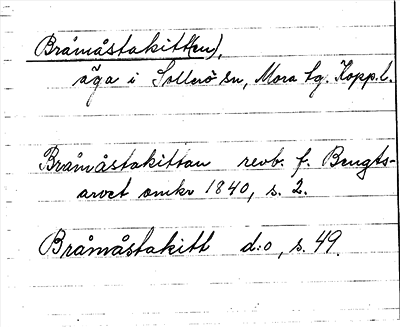 Bråmåstakitt(en),
äga i Sollerö sn, Mora tg. Kopp.l.
Bråmåstakittan revb. f. Bengts-
arvet omkr 1840, s. 2.
Bråmåstakitt d:o, s. 49.